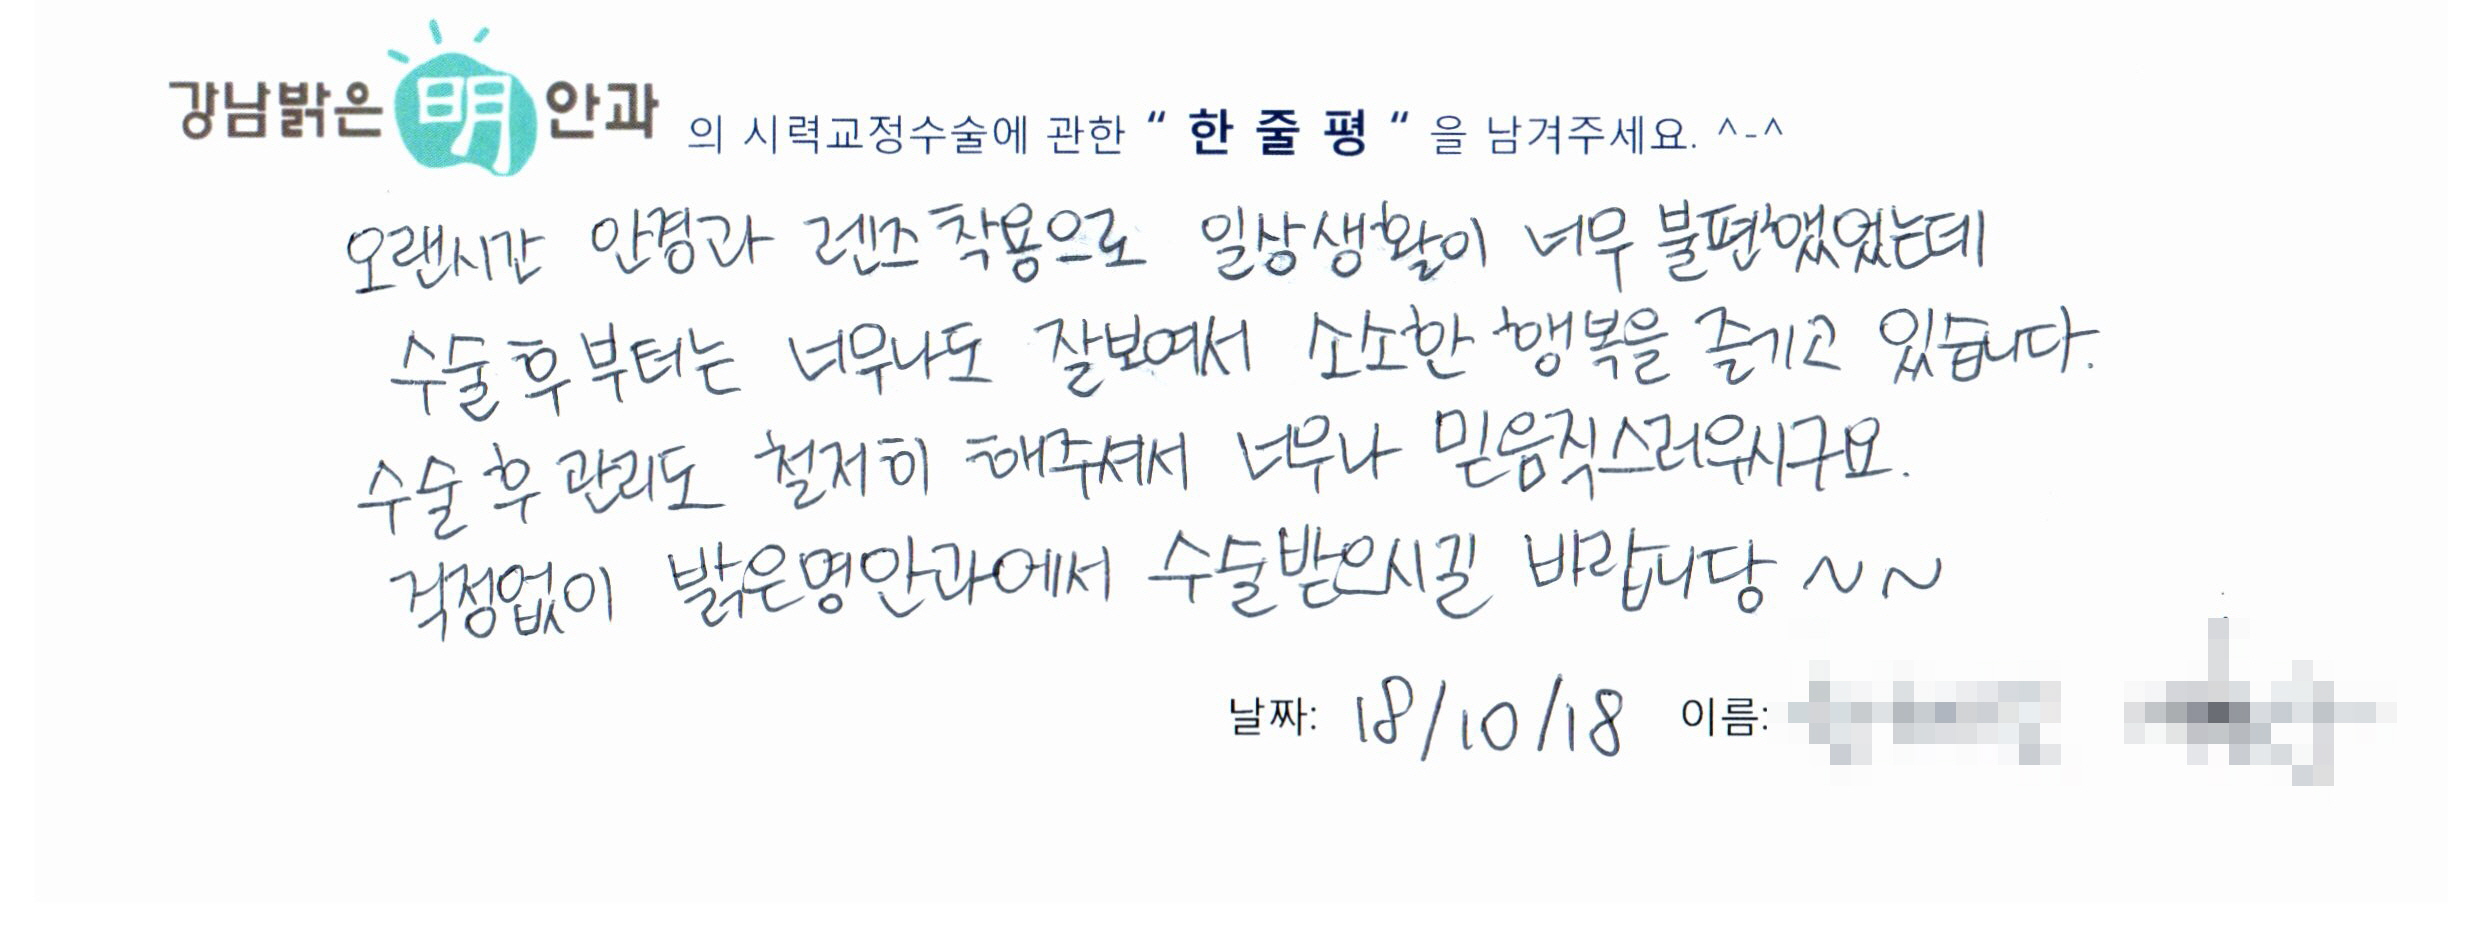 강남밝은明안과의 시력교정수술에 관한 “ 한 줄 평 “ 을 남겨주세요. ^-^
오랜시간 안경과 렌즈착용으로 일상생활이 너무 불편했었는데
수술후부터는 너무나도 잘보여서 소소한 행복을 즐기고 있습니다.
수술후관리도 철저히 해주셔서 너무나 믿음직스러우시구요.
걱정없이 밝은명안과에서 수술받으시길 바랍니당 ~~
날짜: 18/10/18 이름: